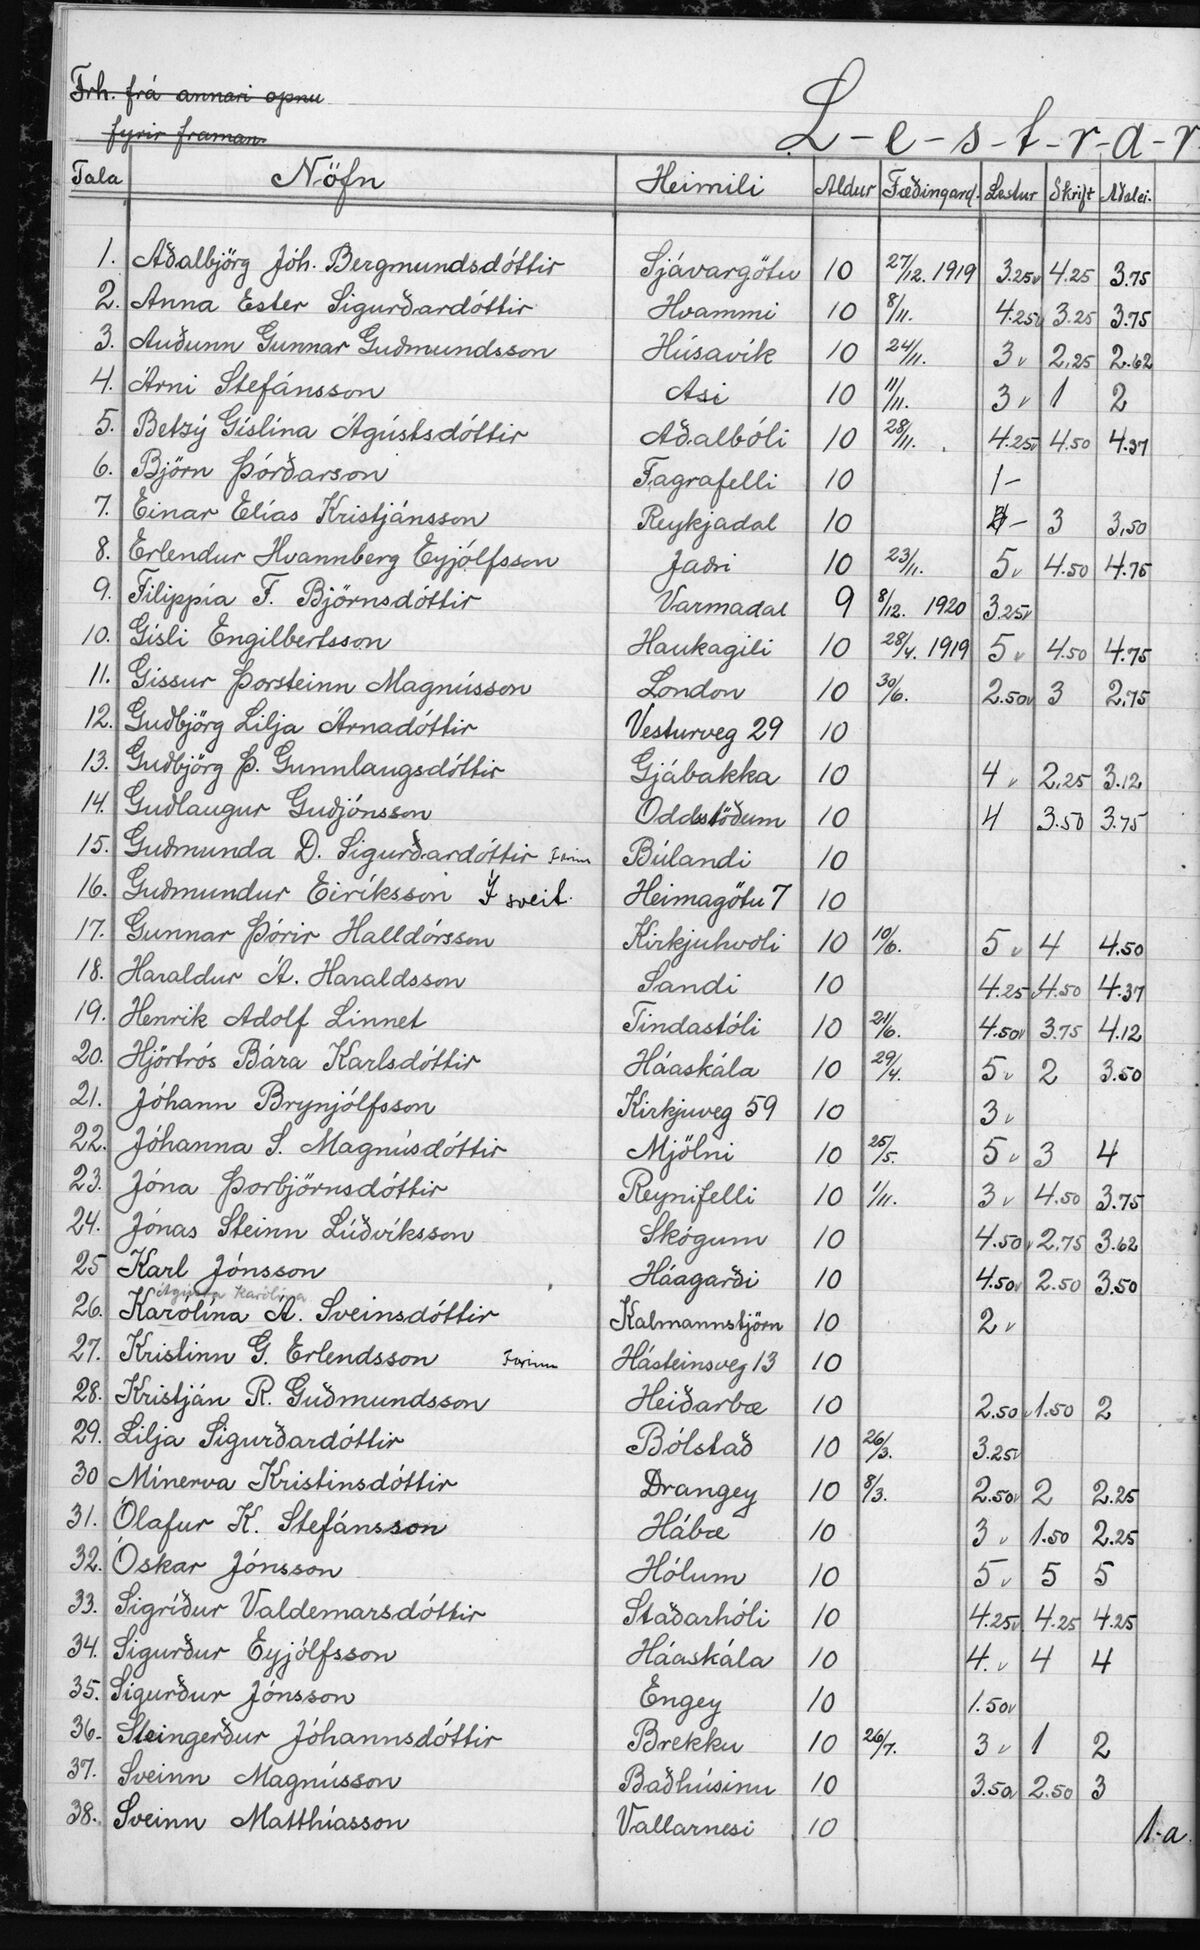 Frh. frá annari opnu
fyrir framan.
L-e-s-t-r-a-r
Tala Nöfn Heimili Aldur Fæðingard. Lestur Skrift Aðalei.
1. Aðalbjörg Jóh. Bergmundsdóttir Sjávargötu 10 27/12. 1919 3.25v 4.25 3.75
2. Anna Ester Sigurðardóttir Hvammi 10 8/11. 4.25v 3.25 3.75
3. Auðunn Gunnar Guðmundsson Húsavík 10 24/11. 3v 2.25 2.62
4. Árni Stefánsson Asi 10 11/11. 3v 1 2
5. Betzý Gíslína Ágústsdóttir Aðalbóli 10 28/11. 4.25v 4.50 4.37
6. Björn Þórðarson Fagrafelli 10 1-
7. Einar Elías Kristjánsson Reykjadal 10 - 3 3,50
8. Erlendur Hvannberg Eyjólfsson Jaðri 10 23/11. 5v 4.50 4.75
9. Filippía F. Björnsdóttir Varmadal 9 8/12. 1920 3.25v
10. Gísli Engilbertsson Haukagili 10 28/4. 1919 5v 4.50 4.75
11. Gissur Þorsteinn Magnússon London 10 30/6. 2.50v 3 2,75
12. Guðbjörg Lilja Árnadóttir Vesturveg 29 10
13. Guðbjörg Þ. Gunnlaugsdóttir Gjábakka 10 4v 2,25 3.12
14. Guðlaugur Guðjónsson Oddstöðum 10 4 3.50 3.75
15. Guðmunda D. Sigurðardóttir Farin Búlandi 10
16. Guðmundur Eiríksson Í sveit. Heimagötu 7 10
17. Gunnar Þórir Halldórsson Kirkjuhvoli 10 10/6. 5v 4 4.50
18. Haraldur Á. Haraldsson Sandi 10 4.25v 4.50 4.37
19. Henrik Adolf Linnet Tindastóli 10 21/6. 4.50v 3.75 4.12
20. Hjörtrós Bára Karlsdóttir Háaskála 10 29/4. 5v 2 3.50
21. Jóhann Brynjólfsson Kirkjuveg 59 10 3v
22. Jóhanna S. Magnúsdóttir Mjölni 10 25/5. 5v 3 4
23. Jóna Þorbjörnsdóttir Reynifelli 10 1/11. 3v 4.50 3.75
24. Jónas Steinn Lúðvíksson Skógum 10 4.50v 2.75 3.62
25 Karl Jónsson Háagarði 10 4.50v 2.50 3.50
Ágústa Karólína
26. Karólína Á. Sveinsdóttir Kalmannstjörn 10 2v
27. Kristinn G. Erlendsson Farinn Hásteinsveg 13 10
28. Kristján R. Guðmundsson Heiðarbæ 10 2.50v 1.50 2
29. Lilja Sigurðardóttir Bólstað 10 26/3. 3.25v
30 Mínerva Kristinsdóttir Drangey 10 8/3. 2.50v 2 2.25
31. Ólafur K. Stefánsson Hábæ 10 3v 1.50 2.25
32. Óskar Jónsson Hólum 10 5v 5 5
33. Sigríður Valdemarsdóttir Staðarhóli 10 4.25v 4.25 4.25
34. Sigurður Eyjólfsson Háaskála 10 4.v 4 4
35. Sigurður Jónsson Engey 10 1.50v
36. Steingerður Jóhannsdóttir Brekku 10 26/7. 3v 1 2
37. Sveinn Magnússon Baðhúsinu 10 3.50v 2.50 3
38. Sveinn Matthíasson Vallarnesi 10
1.a